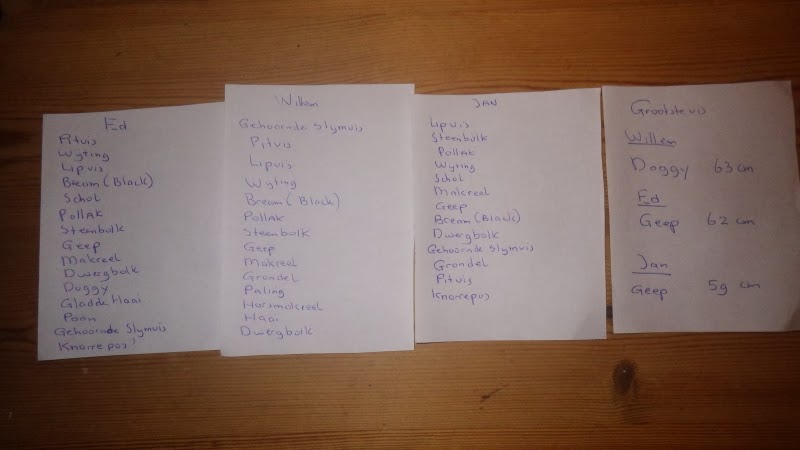 Ed
Pitvis
Wyting
Lipvis
Bream (Black)
Schol
Pollak
Steenbolk
Geep
Makreel
Dwergbolk
Doggy
Gladde Haai
Poon
Gehoornde Slymvis
Knorrepos
Willem
Gehoornde Slymvis
Pitvis
Lipvis
Wyting
Bream (Black)
Pollak
Steenbolk
Geep
Makreel
Grondel
Paling
Horsmakreel
Haai
Dwergbolk
JAN
Lipvis
Steenbolk
Pollak
Wyting
Schol
Makreel
Geep
Bream (Black)
Dwergbolk
Gehoornde Slymvis
Grondel
Pitvis
Knorrepos
Grootste vis
Willem
Doggy 63 cm
Ed
Geep 62 cm
Jan
Geep 59 cm